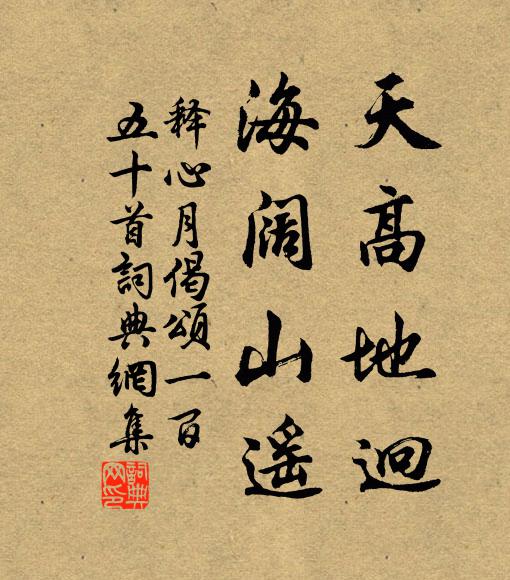 天高地迥
海阔山遥
释心月偈頌一百
五十首詞典網集
詞典網印